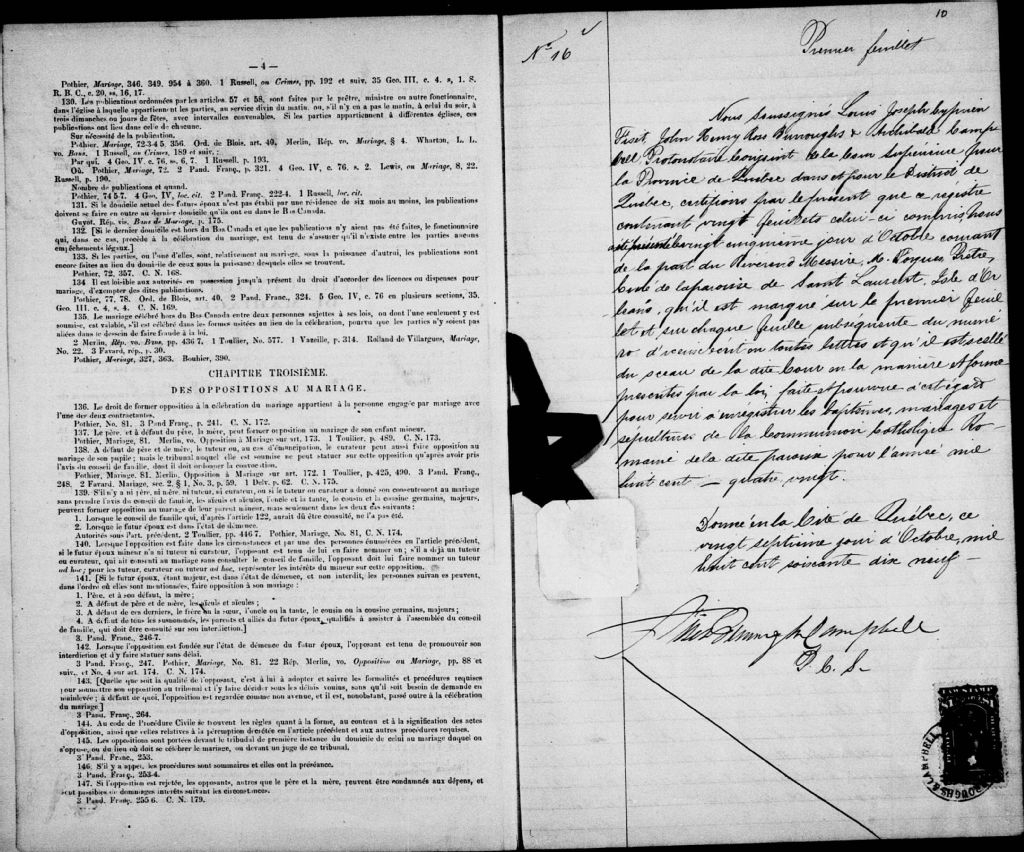 — 4 —
Pothier, Mariage, 346. 349. 954 à 360. 1 Russell, on Crimes, pp. 192 et suiv. 35 Geo. III, c. 4. s, 1. S.
R. B. C., c. 20, ss, 16, 17.
130. Les publications ordonnées par les articles 57 et 58, sont faites par le prêtre, ministre ou autre fonctionnaire,
dans l'église à laquelle appartiennent les parties, au service divin du matin, ou, s'il n'y en a pas le matin, à celui du soir, à
trois dimanches ou jours de fêtes, avec intervalles convenables. Si les parties appartiennent à différentes églises, ces
publications ont lieu dans celle de chacune.
Sur nécessité de la publication.
Pothier, Mariage, 72-3-4 5, 356. Ord. de Blois, art. 40, Merlin, Rép. vo. Mariage, § 4. Wharton, L. L.
vo. Bans, 1 Russell, on Crimes, 189 et suiv. ;
Par qui. 4 Geo. IV, c. 76, ss. 6, 7. 1 Russell, p. 193.
Où. Pothier, Mariage, 72. 2 Pand. Franç., p. 321. 4 Geo. IV, c. 76, s. 2. Lewis, on Mariage, 8, 22.
Russell, p. 190.
Nombre de publications et quand.
Pothier, 74 5-7. 4 Geo, IV, loc. cit. 2 Pand. Franç., 222-4. 1 Russell, loc. cit.
131. Si le domicile actuel des futurs époux n'est pas établi par une résidence de six mois au moins, les publications
doivent se faire en outre au dernier domicile qu'ils ont eu dans le Bas Canada.
Guyot, Rép. vis. Bans de Mariage, p. 175.
132. [Si le dernier domicile est hors du Bas Canada et que les publications n'y aient pas été faites, le fonctionnaire
qui, dans ce cas, procède à la célébration du mariage, est tenu de s'assurer qu'il n'existe entre les parties aucuns
empêchements légaux.]
133. Si les parties, ou l'une d'elles, sont, relativement au mariage, sous la puissance d'autrui, les publications sont
encore faites au lieu du domicile de ceux sous la puissance desquels elles se trouvent.
Pothier, 72, 357. C. N. 168.
134. Il est loisible aux autorités en possession jusqu'à présent du droit d'accorder des licences ou dispenses pour
mariage, d'exempter des dites publications.
Pothier, 77, 78. Ord. de Blois, art. 40. 2 Pand. Franç., 324. 5 Geo. IV, c. 76 en plusieurs sections, 35.
Geo. III, c. 4, s. 4. C. N. 169.
135. Le mariage célébré hors du Bas Canada entre deux personnes sujettes à ses lois, ou dont l'une seulement y est
soumise, est valable, s'il est célébré dans les formes usitées au lieu de la célébration, pourvu que les parties n'y soient pas
allées dans le dessein de faire fraude à la loi.
2 Merlin, Rép. vo. Bans, pp. 436 7. 1 Toullier, No. 577. 1 Vazeille, p. 314. Rolland de Villargues, Mariage,
No. 22. 3 Favard, rép., p. 30.
Pothier, Mariage, 327, 363. Bouhier, 390.
CHAPITRE TROISIÈME.
DES OPPOSITIONS AU MARIAGE.
136. Le droit de former opposition à la célébration du mariage appartient à la personne engagée par mariage avec
l'une des deux contractantes.
Pothier, No. 81. 3 Pand Franç., p. 241. C. N. 172.
137. Le père, et à défaut du père, la mère, peut former opposition au mariage de son enfant mineur.
Pothier, Mariage, 81. Merlin, vo. Opposition à Mariage sur art. 173. 1 Toullier, p. 489. C. N. 173.
138. A défaut de père et de mère, le tuteur ou, au cas d'émancipation, le curateur peut aussi faire opposition au
mariage de son pupille ; mais le tribunal auquel elle est soumise ne peut statuer sur cette opposition qu'après avoir pris
l'avis du conseil de famille, dont il doit ordonner la convocation.
Pothier, Mariage, 81. Merlin, Opposition à Mariage sur art. 172. 1 Toullier, p. 425, 490. 3 Pand. Franç.,
248. 2 Favard, Mariage, sec. 2. § 1, No. 3, p. 59. 1 Delv. p. 62. C. N. 175.
139. S'il n'y a ni père, ni mère, ni tuteur, ni curateur, ou si le tuteur ou curateur a donné son consentement au mariage
sans prendre l'avis du conseil de famille, les aïeuls et aïeules, l'oncle et la tante, le cousin et la cousine germains, majeurs,
peuvent former opposition au mariage de leur parent mineur, mais seulement dans les deux cas suivants :
1. Lorsque le conseil de famille qui, d'après l'article 122, aurait dû être consulté, ne l'a pas été.
2. Lorsque le futur époux est dans l'état de démence.
Autorités sous Part. précédent. 2 Toullier, pp. 446 7. Pothier, Mariage, No. 81, C. N. 174.
140. Lorsque l'opposition est faite dans les circonstances et par une des personnes énumérées en l'article précédent,
si le futur époux mineur n'a ni tuteur ni curateur, l'opposant est tenu de lui en faire nommer un ; s'il a déjà un tuteur
ou curateur, qui ait consenti au mariage sans consulter le conseil de famille, l'opposant doit lui faire nommer un tuteur
ad hoc ; pour les tuteur, curateur ou tuteur ad hoc, représenter les intérêts du mineur sur cette opposition.
141. [Si le futur époux, étant majeur, est dans l'état de démence, et non interdit, les personnes suivantes peuvent,
dans l'ordre où elles sont mentionnées, faire opposition à son mariage :
1. Père, et à son défaut, la mère ;
2. A défaut de père et de mère, les aïeuls et aïeules ;
3. A défaut de ces derniers, le frère ou la sœur, l'oncle ou la tante, le cousin ou la cousine germains, majeurs ;
4. A défaut de tous les susnommés, les parents et alliés du futur époux, qualifiés à assister à l'assemblée du conseil
de famille, qui doit être consulté sur son interdiction.]
3. Pand. Franç., 246-7.
142. Lorsque l'opposition est fondée sur l'état de démence du futur époux, l'opposant est tenu de promouvoir son
interdiction et d'y faire statuer sans délai.
3 Pand. Franç., 247. Pothier, Mariage, No. 81. 22 Rép. Merlin, vo. Opposition au Mariage, pp. 88 et
suiv., et No. 4 sur art. 174. C. N. 174.
143. [Quelle que soit la qualité de l'opposant, c'est à lui à adopter et suivre les formalités et procédures requises
pour soumettre son opposition au tribunal et l'y faire décider sous les délais voulus, sans qu'il soit besoin de demande en
mainlevée ; à défaut de quoi, l'opposition est regardée comme non avenue, et il est, nonobstant, passé outre à la célébration
du mariage.]
3 Pand. Franç., 264.
144. Au code de Procédure Civile se trouvent les règles quant à la forme, au contenu et à la signification des actes
d'opposition, ainsi que celles relatives à la péremption décrétée en l'article précédent et aux autres procédures requises.
145. Les oppositions sont portées devant le tribunal de première instance du domicile de celui au mariage duquel on
s'oppose, ou du lieu où doit se célébrer le mariage, ou devant un juge de ce tribunal.
3 Pand. Franç., 253.
146. S'il y a appel, les procédures sont sommaires et elles ont la préséance.
3 Pand. Franç., 253-4.
147. Si l'opposition est rejetée, les opposants, autres que le père et la mère, peuvent être condamnés aux dépens, et
sont passibles de dommages intérêts suivant les circonstances.
3 Pand. Franç. 255 6. C. N. 179.
10
No 16
Premier feuillet
Nous Soussignés Louis Joseph Cyprien
Fiset John Henry Ross Burroughs & Archibald Camp
bell Protonotaire Conjoint de la Cour Supérieure pour
la Province de Québec dans et pour le District de
Québec, certifions par le présent que ce registre
contenant vingt feuillets celui-ci compris nous
a été présenté ce vingt cinquième jour d'Octobre courant
de la part du Révérend Messire, Prêtre,
Curé de la paroisse de Saint Laurent, Isle d'Or
léans, qu'il est marqué sur le premier feuil
let et sur chaque feuille subséquente du numé
ro d'icelui écrit en toutes lettres et qu'il est scellé
du sceau de la dite Cour en la manière et forme
prescrites par la loi, faite et pourvue à cet égard
pour servir à enregistrer les baptêmes, mariages et
sépultures de la Communion Catholique Ro-
maine de la dite paroisse pour l'année mil
huit cent — quatre vingt.
Donné en la Cité de Québec, ce
vingt septième jour d'Octobre, mil
huit cent soixante dix neuf
Campbell
P. C. S.
LAW STAMP
$1
BURROUGHS & CAMPBELL